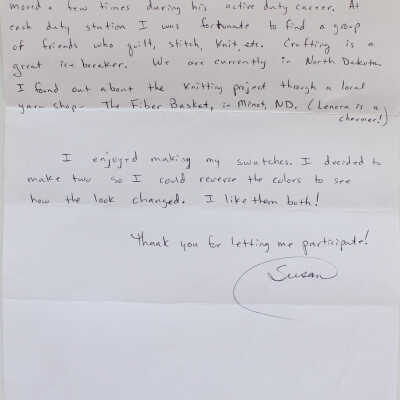 moved a few times during his active duty career. At
each duty station I was fortunate to find a group
of friends who quilt, stitch, knit, etc. Crafting is a
great ice-breaker. We are currently in North Dakota.
I found out about the knitting project through a local
yarn shop - The Fiber Basket, in Minot, ND. (Lenora is a
charmer!)
I enjoyed making my swatches. I decided to
make two so I could reverse the colors to see
how the look changed. I like them both!
Thank you for letting me participate!
Susan